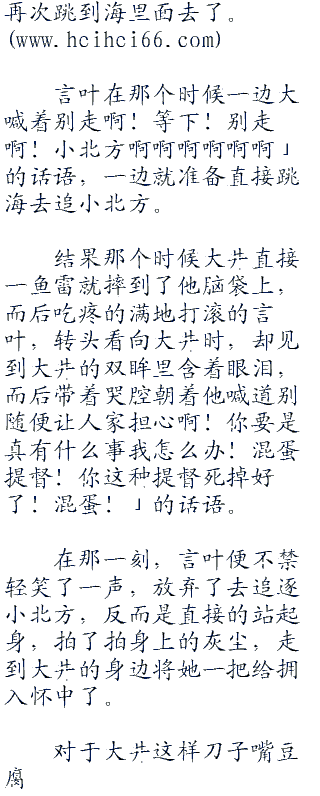 再次跳到海里面去了。
(www.hcihci66.com)
言叶在那个时候一边大
喊着别走啊！等下！别走
啊！小北方啊啊啊啊啊啊」
的话语，一边就准备直接跳
海去追小北方。
结果那个时候大井直接
一鱼雷就摔到了他脑袋上，
而后吃疼的满地打滚的言
叶，转头看向大井时，却见
到大井的双眸里含着眼泪，
而后带着哭腔朝着他喊道别
随便让人家担心啊！你要是
真有什么事我怎么办！混蛋
提督！你这种提督死掉好
了！混蛋！」的话语。
在那一刻，言叶便不禁
轻笑了一声，放弃了去追逐
小北方，反而是直接的站起
身，拍了拍身上的灰尘，走
到大井的身边将她一把给拥
入怀中了。
对于大井这样刀子嘴豆
腐